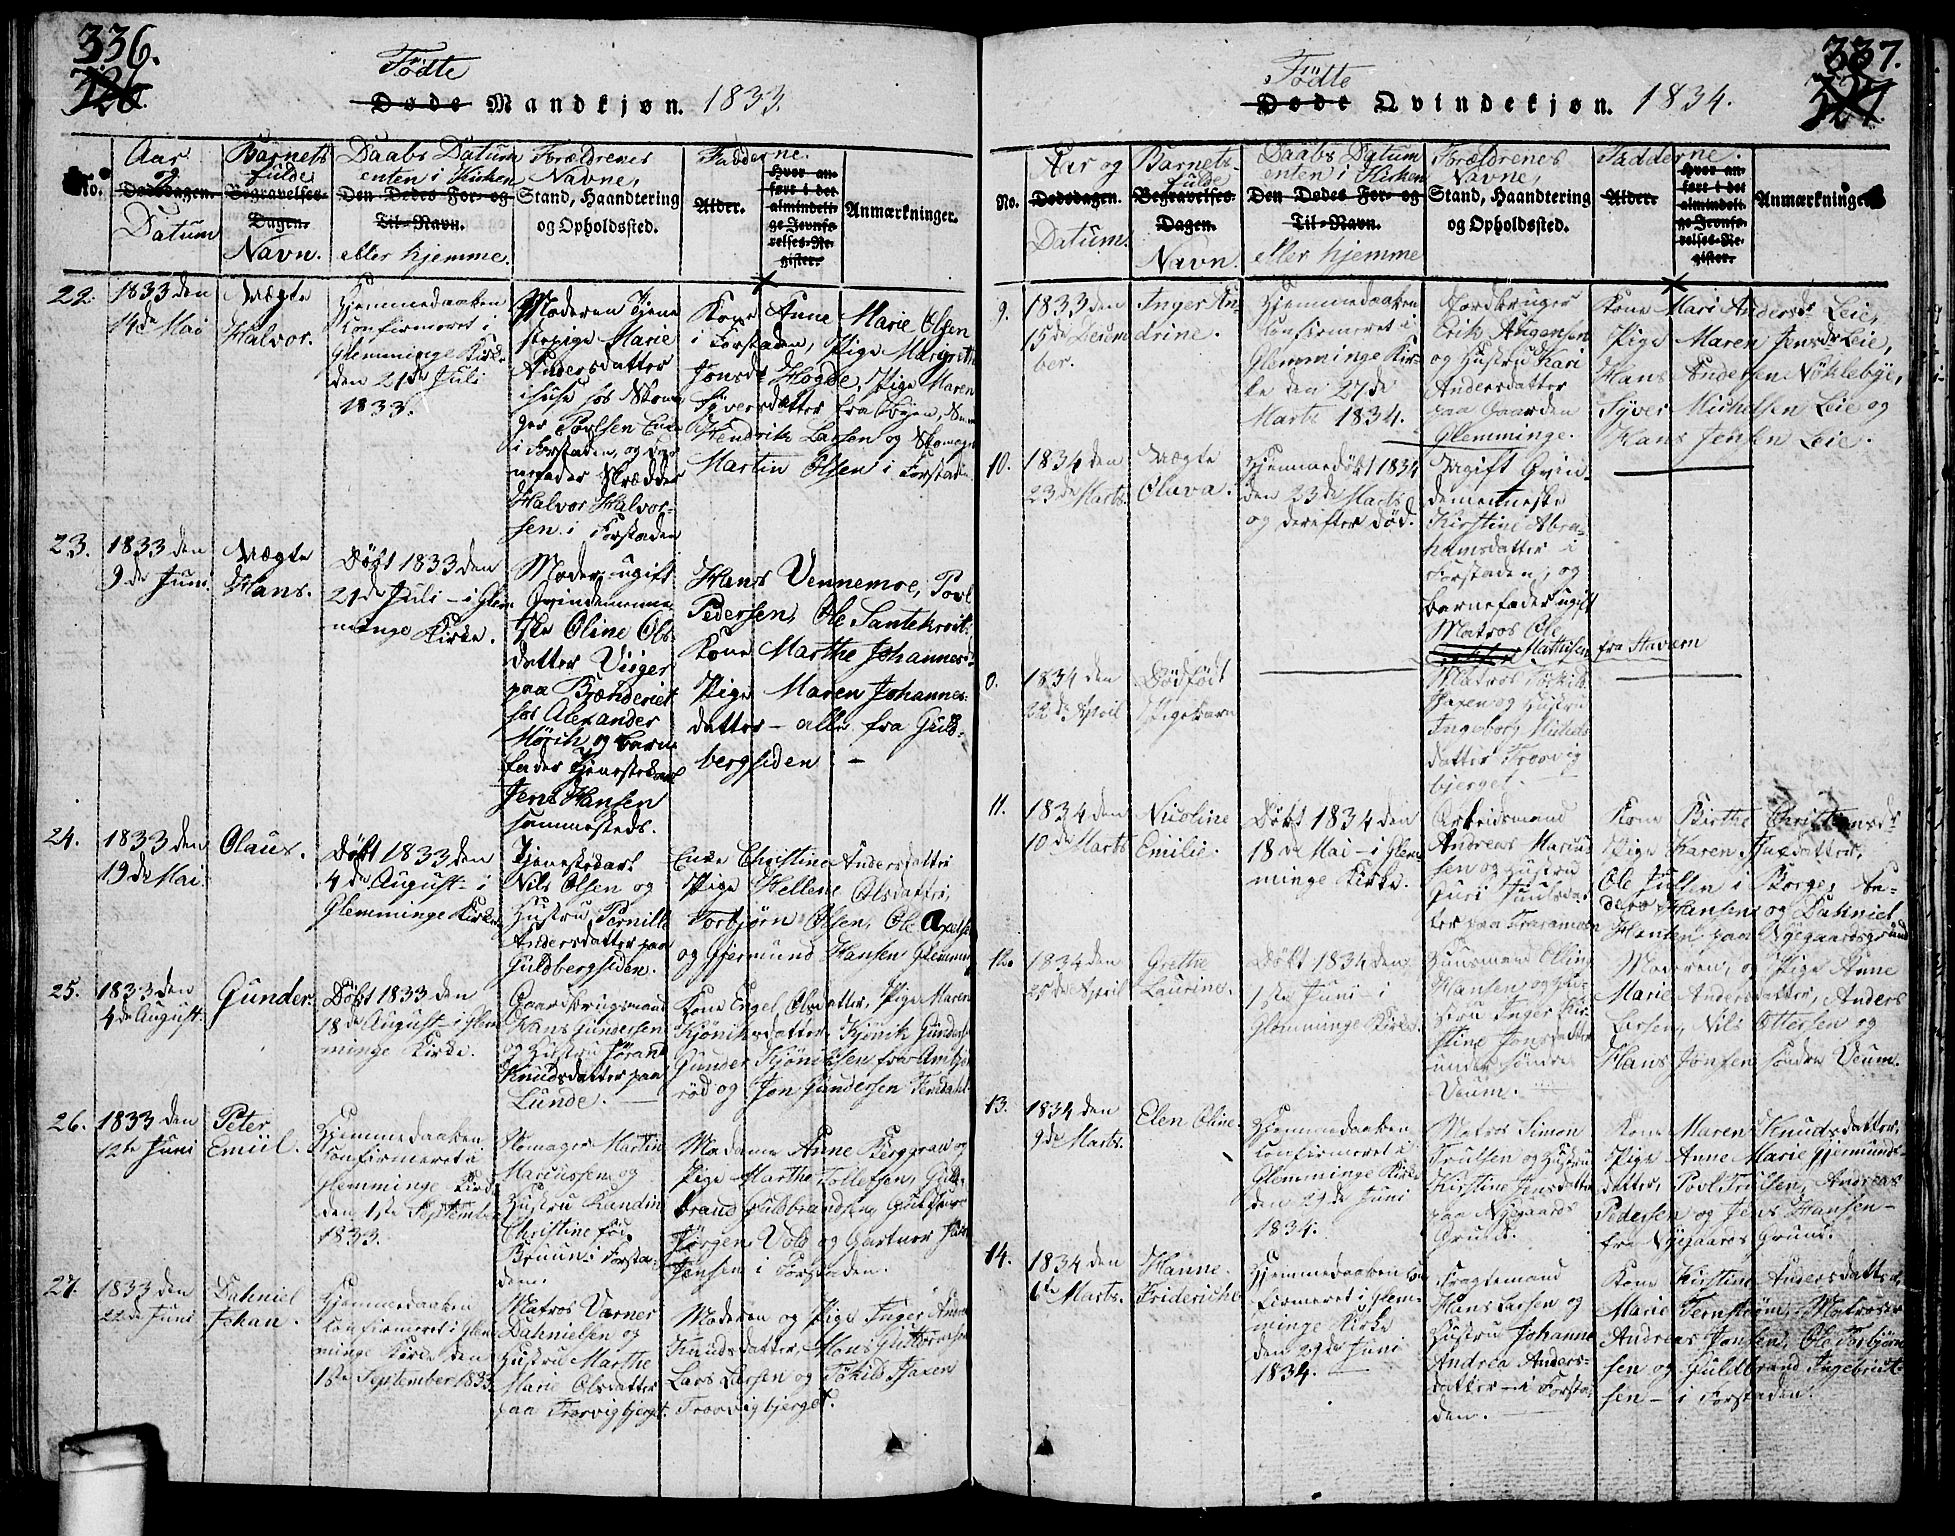 336.
326.
Födte
Døde Mandkjøn. 1833.
Aar og Datum
Barnets fulde Navn.
Daabs Datum enten i Kirken eller hjemme.
Forældrenes Navne,
Fadderne.
No.
Dødsdagen.
Begravelses-Dagen.
Den Dødes For- og Til-Navn.
Stand, Haandtering og Opholdssted.
Alder.
Hvor anført i det almindelige Jevnførelses-Register.
Anmærkninger.
22. 1833 den 14de Mai
Uægte Halvor.
Hjemmedaaben
Confirmeret i
Glemminge Kirke
den 21de Juli
1833.
Moderen Tjene
stepige Marie
Andersdatter
Halvor Halvor-
sen i Forstaden
Kone Anne Marie Olsen
i Forstaden, Pige Margrethe
Jonsdr Hogde, Pige Maren
Syversdatter fra Byen,
Hendrik Larsen og Skomager
Martin Olsen i Forstaden
23. 1833 den 9de Juni.
Uægte Hans.
Döbt 1833 den
21de Juli - i Glem
minge Kirke.
Moder, ugift
Qvindemenne
ske Oline Ols
datter Viiger
paa
hos Alexander
Mörch og Barne
fader Tjenestekarl
Jens Hansen
sammesteds.
Hans Vennemoe, Povl
Pedersen, Ole
Kone Marthe Johannesdr
Pige Maren Johannes-
datter - alle fra Guld-
bergsiden. -
24. 1833 den 19de Mai.
Olaus.
Döbt 1833 den
4de August - i
Glemminge Kirke
Tjenestekarl
Nils Olsen og
Hustru Pernille
Andersdatter paa
Guldbergsiden.
Enke Christine Andersdatter
Pige Hellene Olsdatter,
Torbjörn Olsen, Ole Axelsen
og Gjermund Hansen Glemminge
25. 1833 den 4de August.
Gunder.
Döbt 1833 den
18de August - i Glem
minge Kirke.
Gaardbrugsmand
Hans Gundersen
og Hustru Jörand
Knudsdatter paa
Lunde. -
Kone Engel Olsdatter, Pige Maren
Kjöniksdatter, Kjönik Gunders
Gunder Kjöniksen fra
röd og Jon Gundersen
26. 1833 den 12te Juni
Peter Emiil.
Hjemmedaaben
Confirmeret i
Glemminge Kirke
den 1ste September
1833.
Skomager Martin
Marcussen og
Hustru Randine
Christine föd
Bruun i Forsta-
den.
Madame Anne Berggran og
Pige Marthe Tollefsen, Guld-
brand Guldbrandsen,
Jörgen Vold og Gartner
Jensen i Forstaden.
27. 1833 den 22de Juni
Dahniel Johan.
Hjemmedaaben
Confirmeret i Glem
minge Kirke den
1ste September 1833.
Matros Varner
Dahnielsen og
Hustru Marthe
Marie Olsdatter
paa Trosvigbjerget.
Moderen og Pige Inger
Knudsdatter, Mons Gulbrandsen
Lars Larsen og Tökild Isaxen
Trosvigbjerget.
337.
327.
Födte
Døde Qvindekjøn. 1834.
Aar og Datum.
Barnets fulde Navn
Daabs Datum enten i Kirken eller hjemme
Forældrenes Navne,
Fadderne.
No.
Dødsdagen.
Begravelses-Dagen.
Den Dødes For- og Til-Navn.
Stand, Haandtering og Opholdssted.
Alder.
Hvor anført i det almindelige Jevnførelses-Register.
Anmærkninger
9. 1833 den 15de Decem ber.
Inger An drine.
Hjemmedaaben
Confirmeret i
Glemminge Kir-
ke den 27de
Marts 1834.
Jordbruger
Erik Augensen
og Hustru Kari
Andersdatter
paa Gaarden
Glemminge.
Kone Mari Andersdr Leie,
Pige Maren Jensdr Leie,
Hans Andersen Nöklebye,
Syver Michelsen Leie og
Hans Jensen Leie.
10. 1834 den 23de Marts.
Uægte Olava.
Hjemmedöbt 1834
den 23de Marts
og derefter död.
Ugift Qvin-
demenneske
Kirstine Abra-
hamsdatter i
Forstaden, og
Barnefader ugift
Matros Ole
Mathisen fra Stavern
0. 1834 den 22de April
Dödfödt
Pigebarn
Matros Tökild
Isaxen og Hustru
Ingebor Nields
datter Trosvig
bjerget.
11. 1834 den 10de Marts
Nicoline Emilie.
Döbt 1834 den
18de Mai - i Glem
minge Kirke.
Arbeidsmand
Andreas Marius
sen og Hustru
Guri Juulsdat
ter paa
Kone Birthe Christensdr
Pige Karen
Ole Julsen i Borge, An-
ders Hansen og Dahniel
Hansen paa Nyegaardsgrund
12. 1834 den 25de April
Grethe Laurine.
Döbt 1834 den
1ste Juni - i
Glemminge Kirke.
Huusmand
Hansen og Hu-
stru Inger Kir-
stine Jonsdatter
under söndre
Veum.
Moderen, og Pige Anne
Marie Andersdatter, Anders
Larsen, Nils Ottersen og
Hans Jonsen söndre Veum.
13. 1834 den 9de Marts.
Elen Oline.
Hjemmedaaben
Confirmeret i
Glemminge Kirke
den 29de Juni
1834.
Matros Simon
Trulsen og Hustru
Kirstine Jensdatter
paa Nygaards
Grund.
Kone Maren Knudsdatter,
Pige Anne Marie Gjermunds-
datter, Povl Trulsen, Andreas
Pedersen og Jens Hansen -
fra Nyegaards Grund.
14. 1834 den 6te Marts.
Hanne Frideriche
Hjemmedaaben Con
firmeret i Glem-
minge Kirke
den 29de Juni
1834.
Fragtemand
Hans Larsen og
Hustru Johanne
Andrea Anders-
datter - i Forsta-
den.
Kone Kirstine Andersdatter,
Marie Fernström, Matroser
Andreas Jonsen, Ole Torbjörn
sen og Guldbrand Ingebret-
sen - i Forstaden.